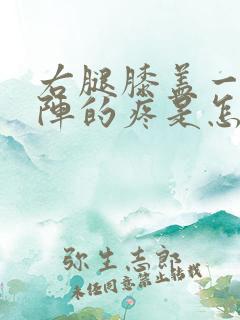 右腿膝盖一
陣的疼是怎
弥生志郎
未经同意禁止转载